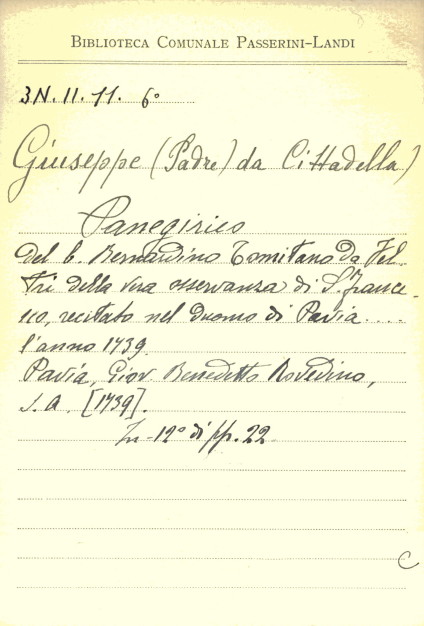 BIBLIOTECA COMUNALE PASSERINI-LANDI
3N.II.11. 6º
Giuseppe (Padre) da Cittadella)
Panegirico
del b. Bernardino Tomitano da Fel-
tri della vera osservanza di S. France-
sco, recitato nel duomo di Pavia....
l'anno 1739.
Pavia, Giov. Benedetto Rovedino,
s.a. [1739].
In-12º di pp. 22
C